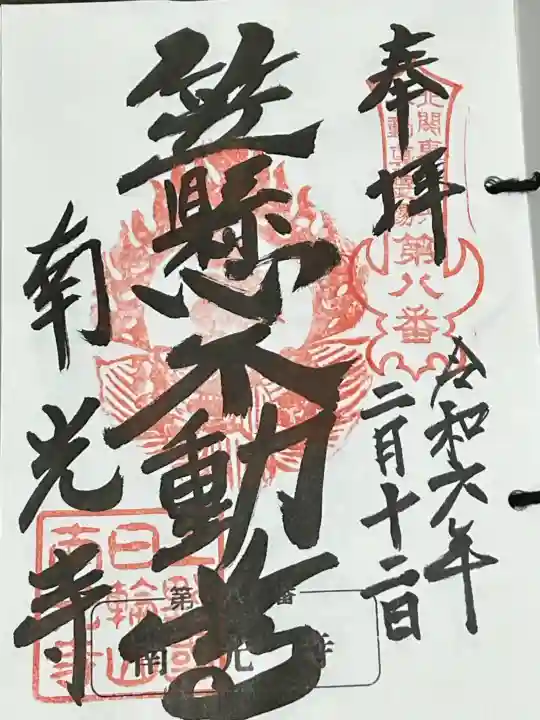 奉拝
北関東
第八番
令和六年
二月十二日
笠懸不動尊
南光寺
第八番
南光寺
日輪山
南光寺